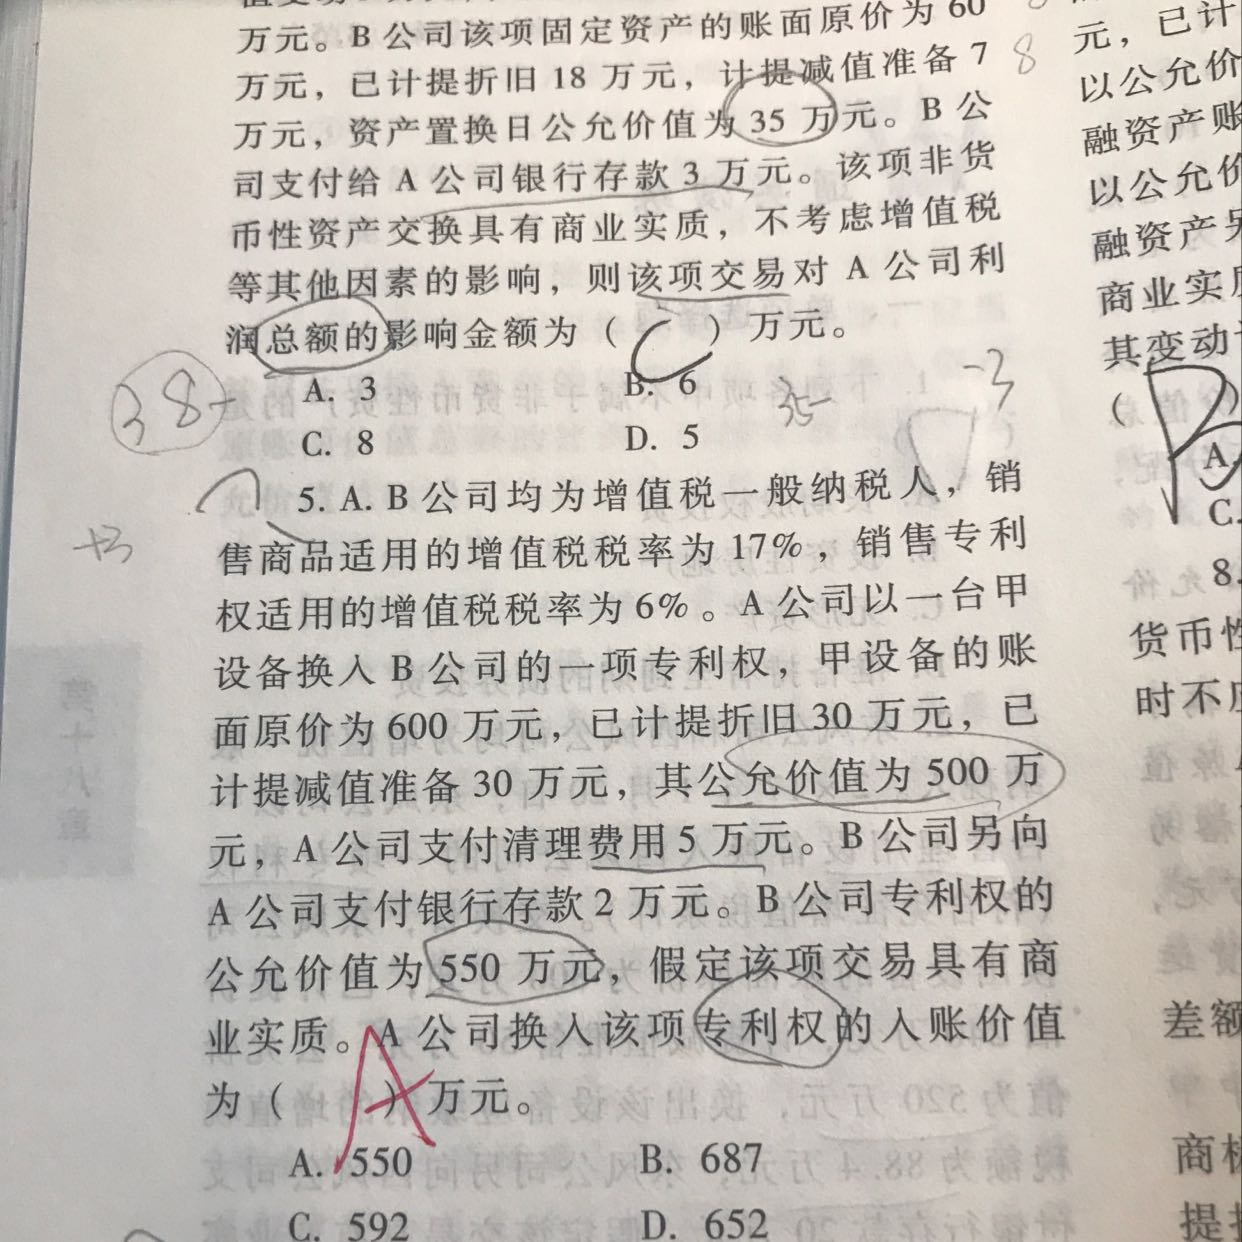 万元。B公司该项固定资产的账面原价为60
万元，已计提折旧18万元，计提减值准备7
万元，资产置换日公允价值为35万元。B公
司支付给A公司银行存款3万元。该项非货
币性资产交换具有商业实质，不考虑增值税
等其他因素的影响，则该项交易对A公司利
润总额的影响金额为（C）万元。
A. 3 B. 6
C. 8 D. 5
38-
35-
-3
+3
8
5. A. B公司均为增值税一般纳税人，销
售商品适用的增值税税率为17%，销售专利
权适用的增值税税率为6%。A公司以一台甲
设备换入B公司的一项专利权，甲设备的账
面原价为600万元，已计提折旧30万元，已
计提减值准备30万元，其公允价值为500万
元，A公司支付清理费用5万元。B公司另向
A公司支付银行存款2万元。B公司专利权的
公允价值为550万元，假定该项交易具有商
业实质。A公司换入该项专利权的入账价值
为（A）万元。
A. 550 B. 687
C. 592 D. 652
元，已计
以公允价
融资产账
以公允价
融资产另
商业实质
其变动
（
A.
C.
8.
货币性
时不应
差额
商标
提折
第十八章